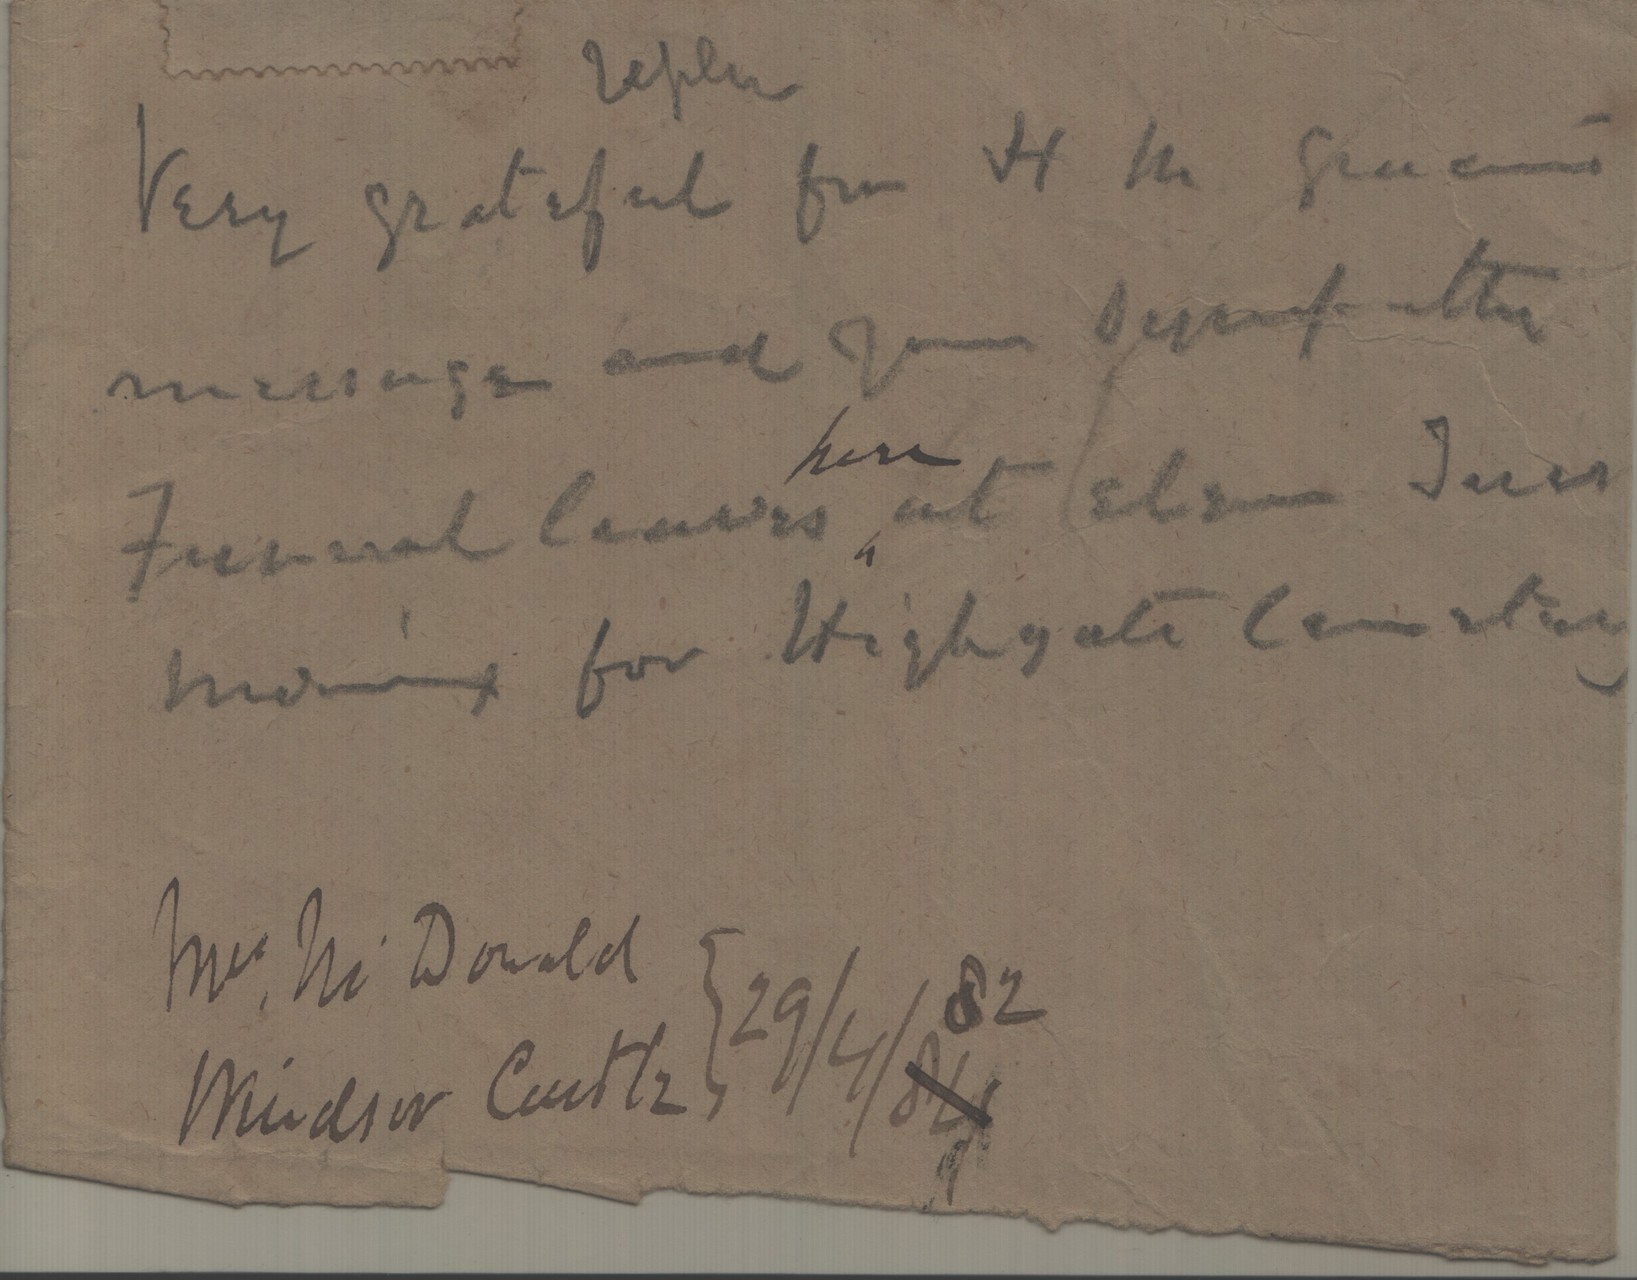 reply
Very grateful for H M gracious
message and your sympathy
Funeral leaves here at eleven Tues
morning for Highgate Cemetery
Mrs. McDonald
Windsor Castle } 29/4/82
84